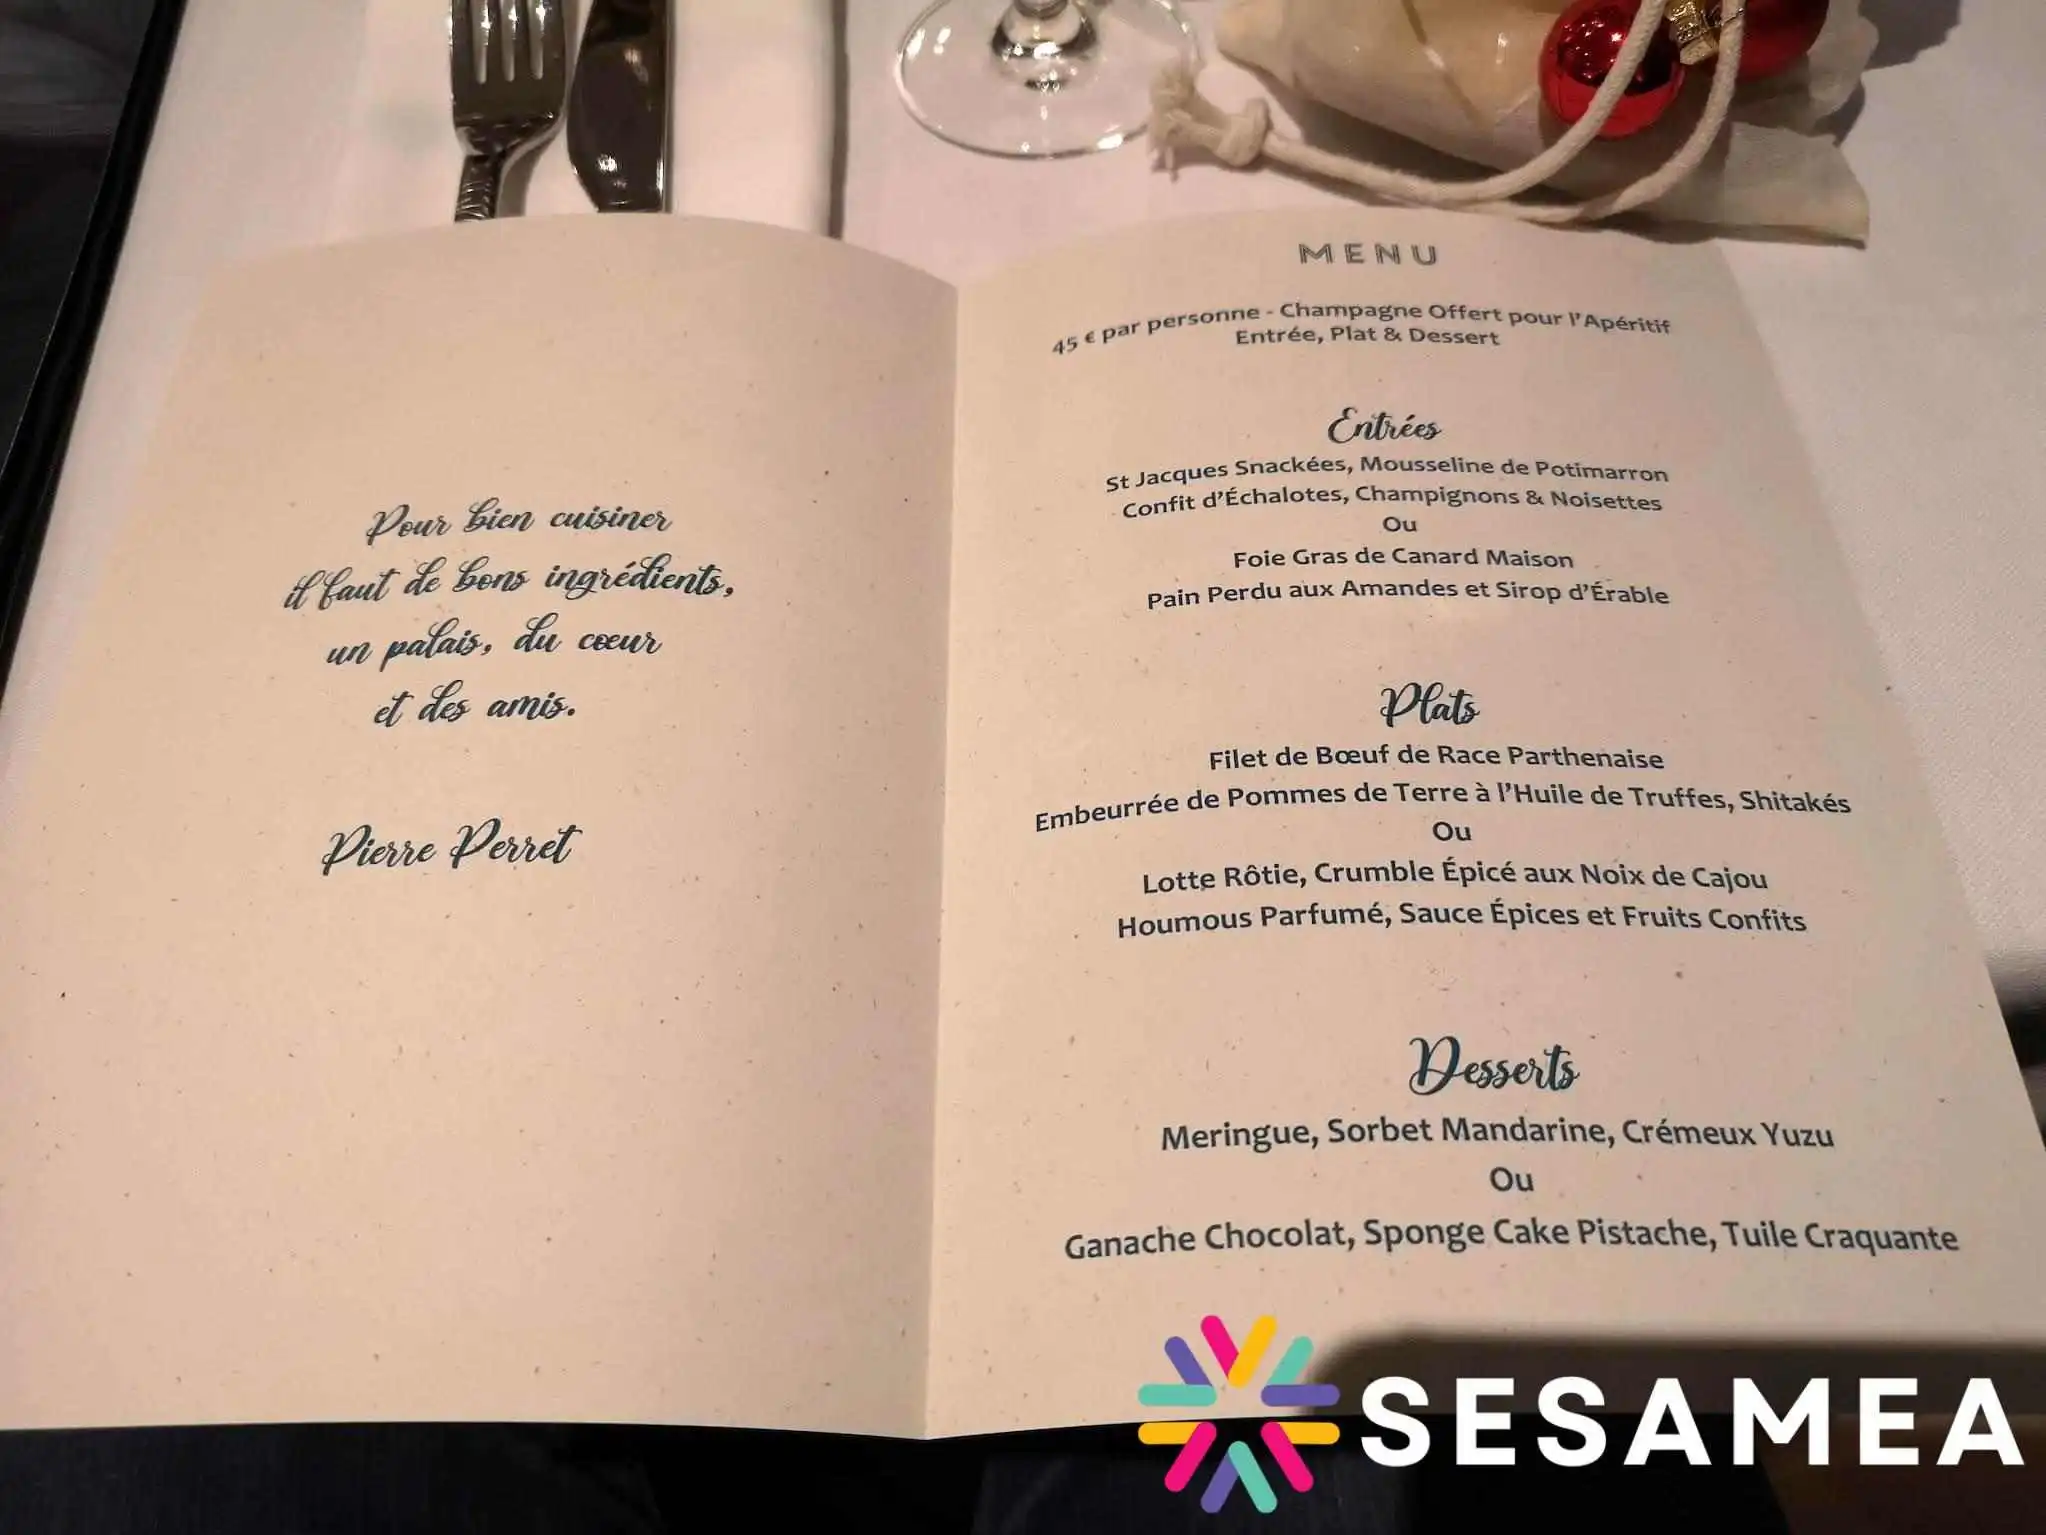 Pour bien cuisiner
il faut de bons ingrédients,
un palais, du cœur
et des amis.
Pierre Perret
MENU
45 € par personne - Champagne Offert pour l'Apéritif
Entrée, Plat & Dessert
Entrées
St Jacques Snackées, Mousseline de Potimarron
Confit d'Échalotes, Champignons & Noisettes
Ou
Foie Gras de Canard Maison
Pain Perdu aux Amandes et Sirop d'Érable
Plats
Filet de Bœuf de Race Parthenaise
Embeurrée de Pommes de Terre à l'Huile de Truffes, Shitakés
Ou
Lotte Rôtie, Crumble Épicé aux Noix de Cajou
Houmous Parfumé, Sauce Épices et Fruits Confits
Desserts
Meringue, Sorbet Mandarine, Crémeux Yuzu
Ou
Ganache Chocolat, Sponge Cake Pistache, Tuile Craquante
SESAMEA